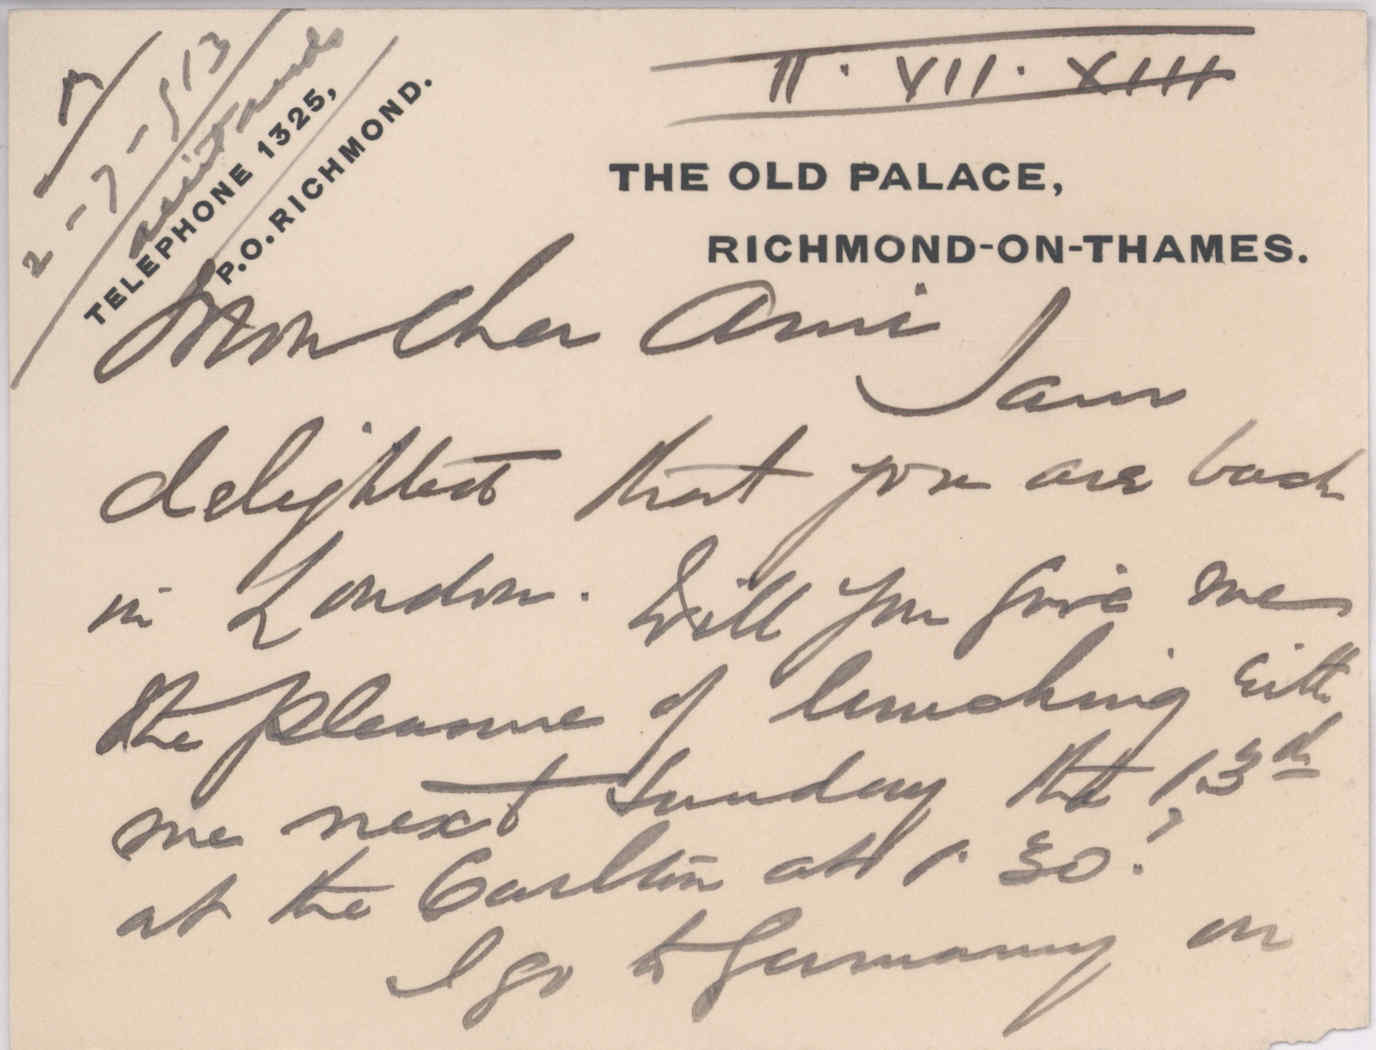 R
2-7-913
TELEPHONE 1325,
P.O. RICHMOND.
II. VII. XIII
THE OLD PALACE,
RICHMOND-ON-THAMES.
Mon Cher Ami
I am
delighted that you are back
in London. Will you give me
the pleasure of lunching with
me next Sunday the 13rd
at the Carlton at 1.30?
I go to Germany on